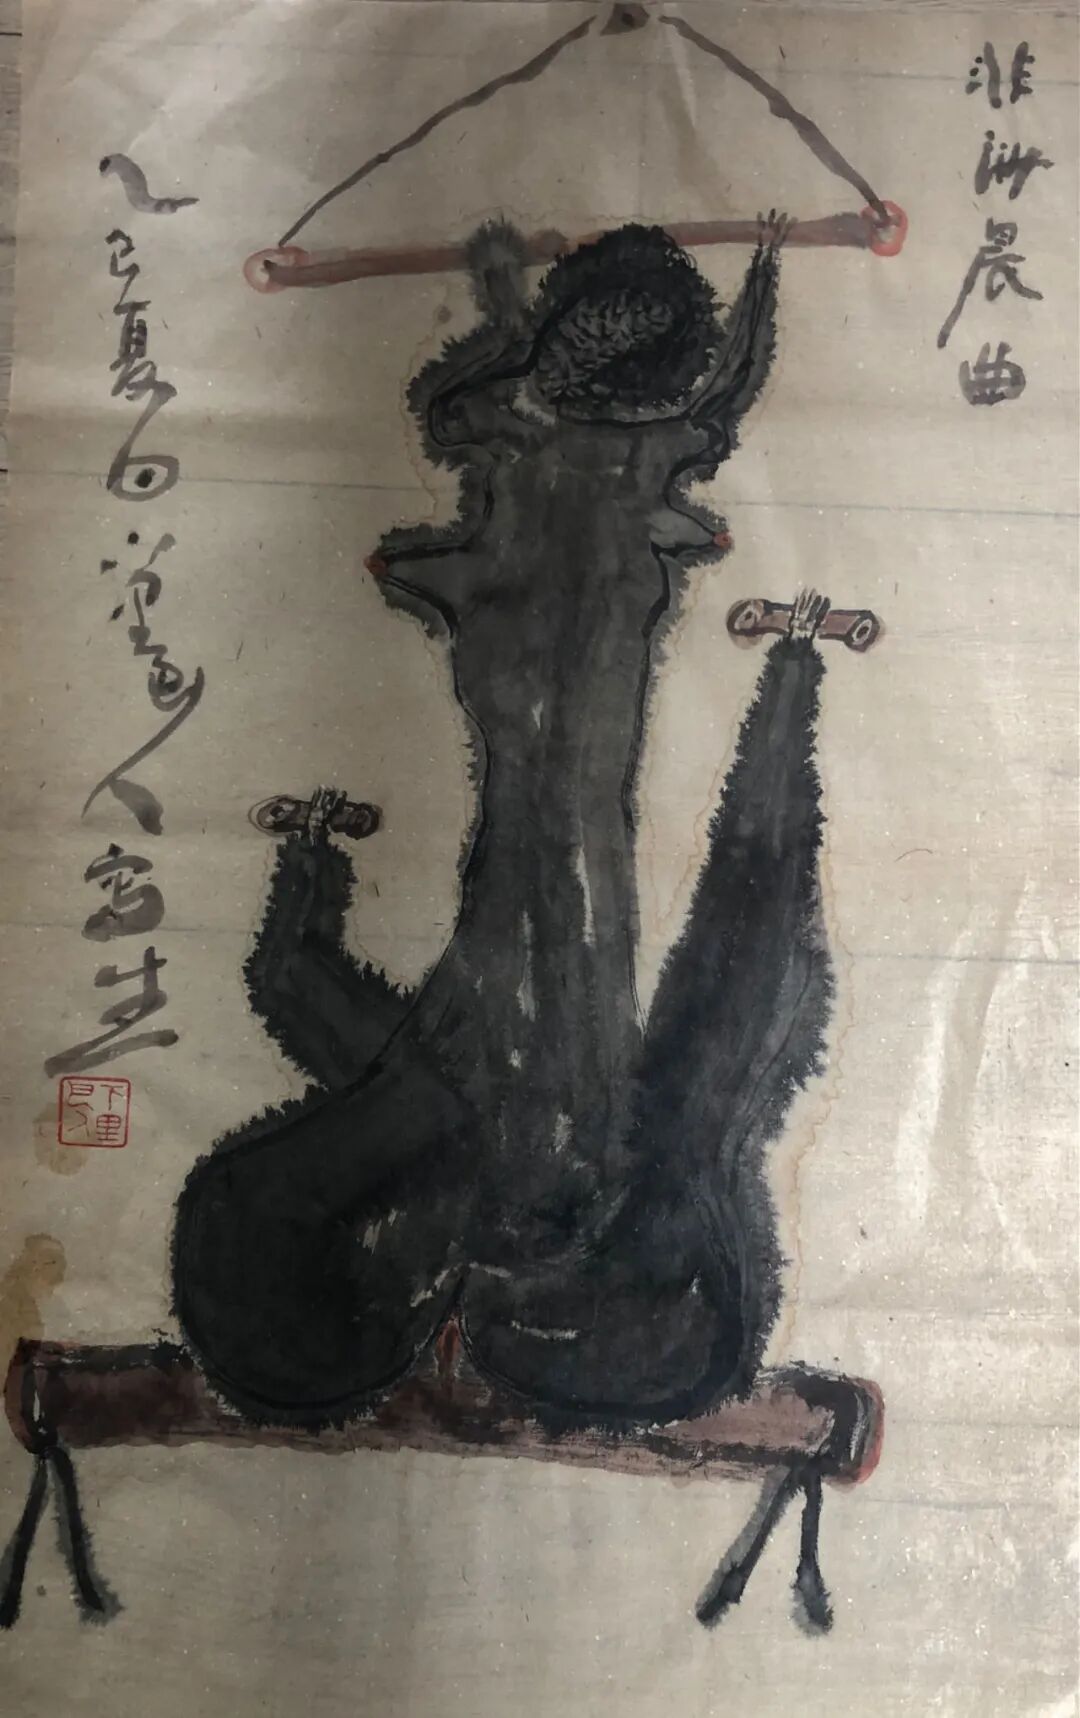 非洲晨曲
乙巳夏日
人写生
下里
巴人